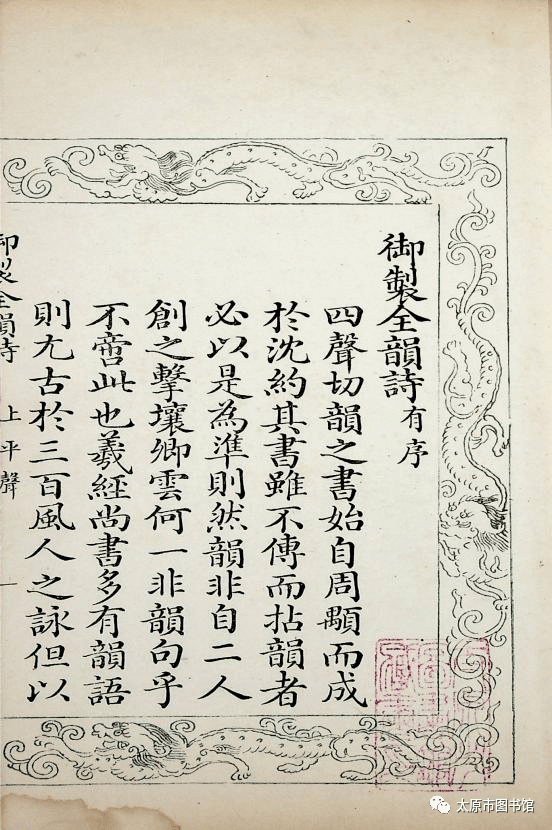 御製全韻詩有序
四聲切韻之書始自周顒而成
於沈約其書雖不傳而拈韻者
必以是為準則然韻非自二人
創之擊壤卿雲何一非韻句乎
不啻此也羲經尚書多有韻語
則尤古於三百風人之詠但以
御製全韻詩 上平聲 一
太原市图书馆